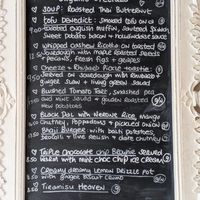 SOUP: ROASTED THAI BUTTERNUT
TOFU BENEDICT: SMOKED TOFU ON A
TOASTED ENGLISH MUFFIN, SAUTÉED SPINACH,
SWEET POTATO BACON + HOLLANDAISE SAUCE
WHIPPED CASHEW RICOTTA ON TOASTED
SOURDOUGH WITH MAPLE ROASTED SWEETS
+ PECANS, FRESH FIGS + GRAPES
CHEESE + RHUBARB PICKLE TOASTIE:
SERVED ON SOURDOUGH WITH RHUBARB
GINGER SLAW + LIVING GREEN SALAD
CRUSHED TOMATO TART, SMASHED PEA
AND MINT SALAD + GOLDEN ROASTED
NEW POTATOES
BLACK DAL WITH NERONE RICE, MANGO
CHUTNEY, POPPADOMS + PICKLED ONION
BHAJI BURGER: WITH BATH POTATOES,
BROCOLI + LIME RELISH + DARE CHUTNEY
TRIPLE CHOCOLATE CHIP BROWNIE SERVED
WARM WITH MINT CHOC CHIP ICE CREAM
CREAMY DREAMY LEMON DRIZZLE POT
WITH GINGER BISCUIT CRUMB
TIRAMISU HEAVEN